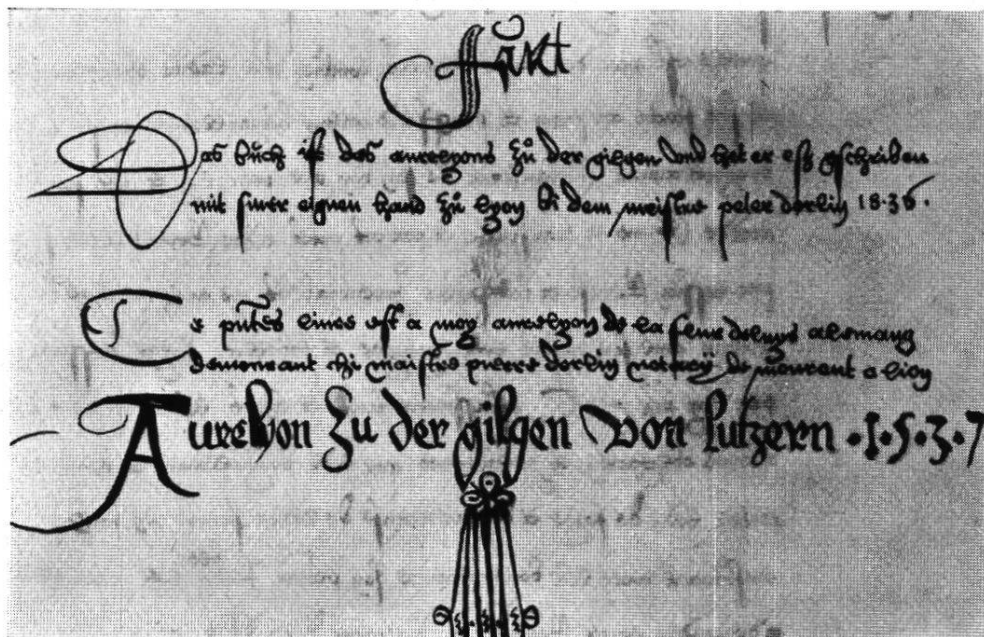 Das bůch ist des aurelyons zů der gilgen und het er eß gschriben
mit siner eignen hand zů lyon bi dem meister peter dorlin 1836.
Ce putes livres est a moy aurelyon de la fleur de lyys alemang
demourant chi maistre pierre dorlin notary demourant a lion
Aurelyon zu der gilgen von lutzern .1.5.3.7